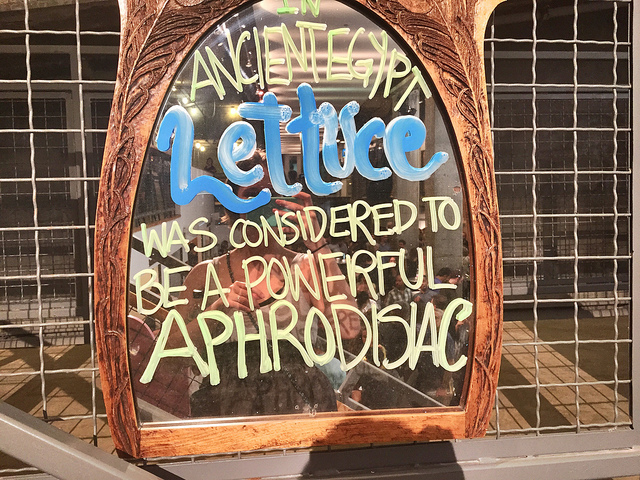 IN
ANCIENT EGYPT
Lettuce
WAS CONSIDERED TO
BE A POWERFUL
APHRODISIAC